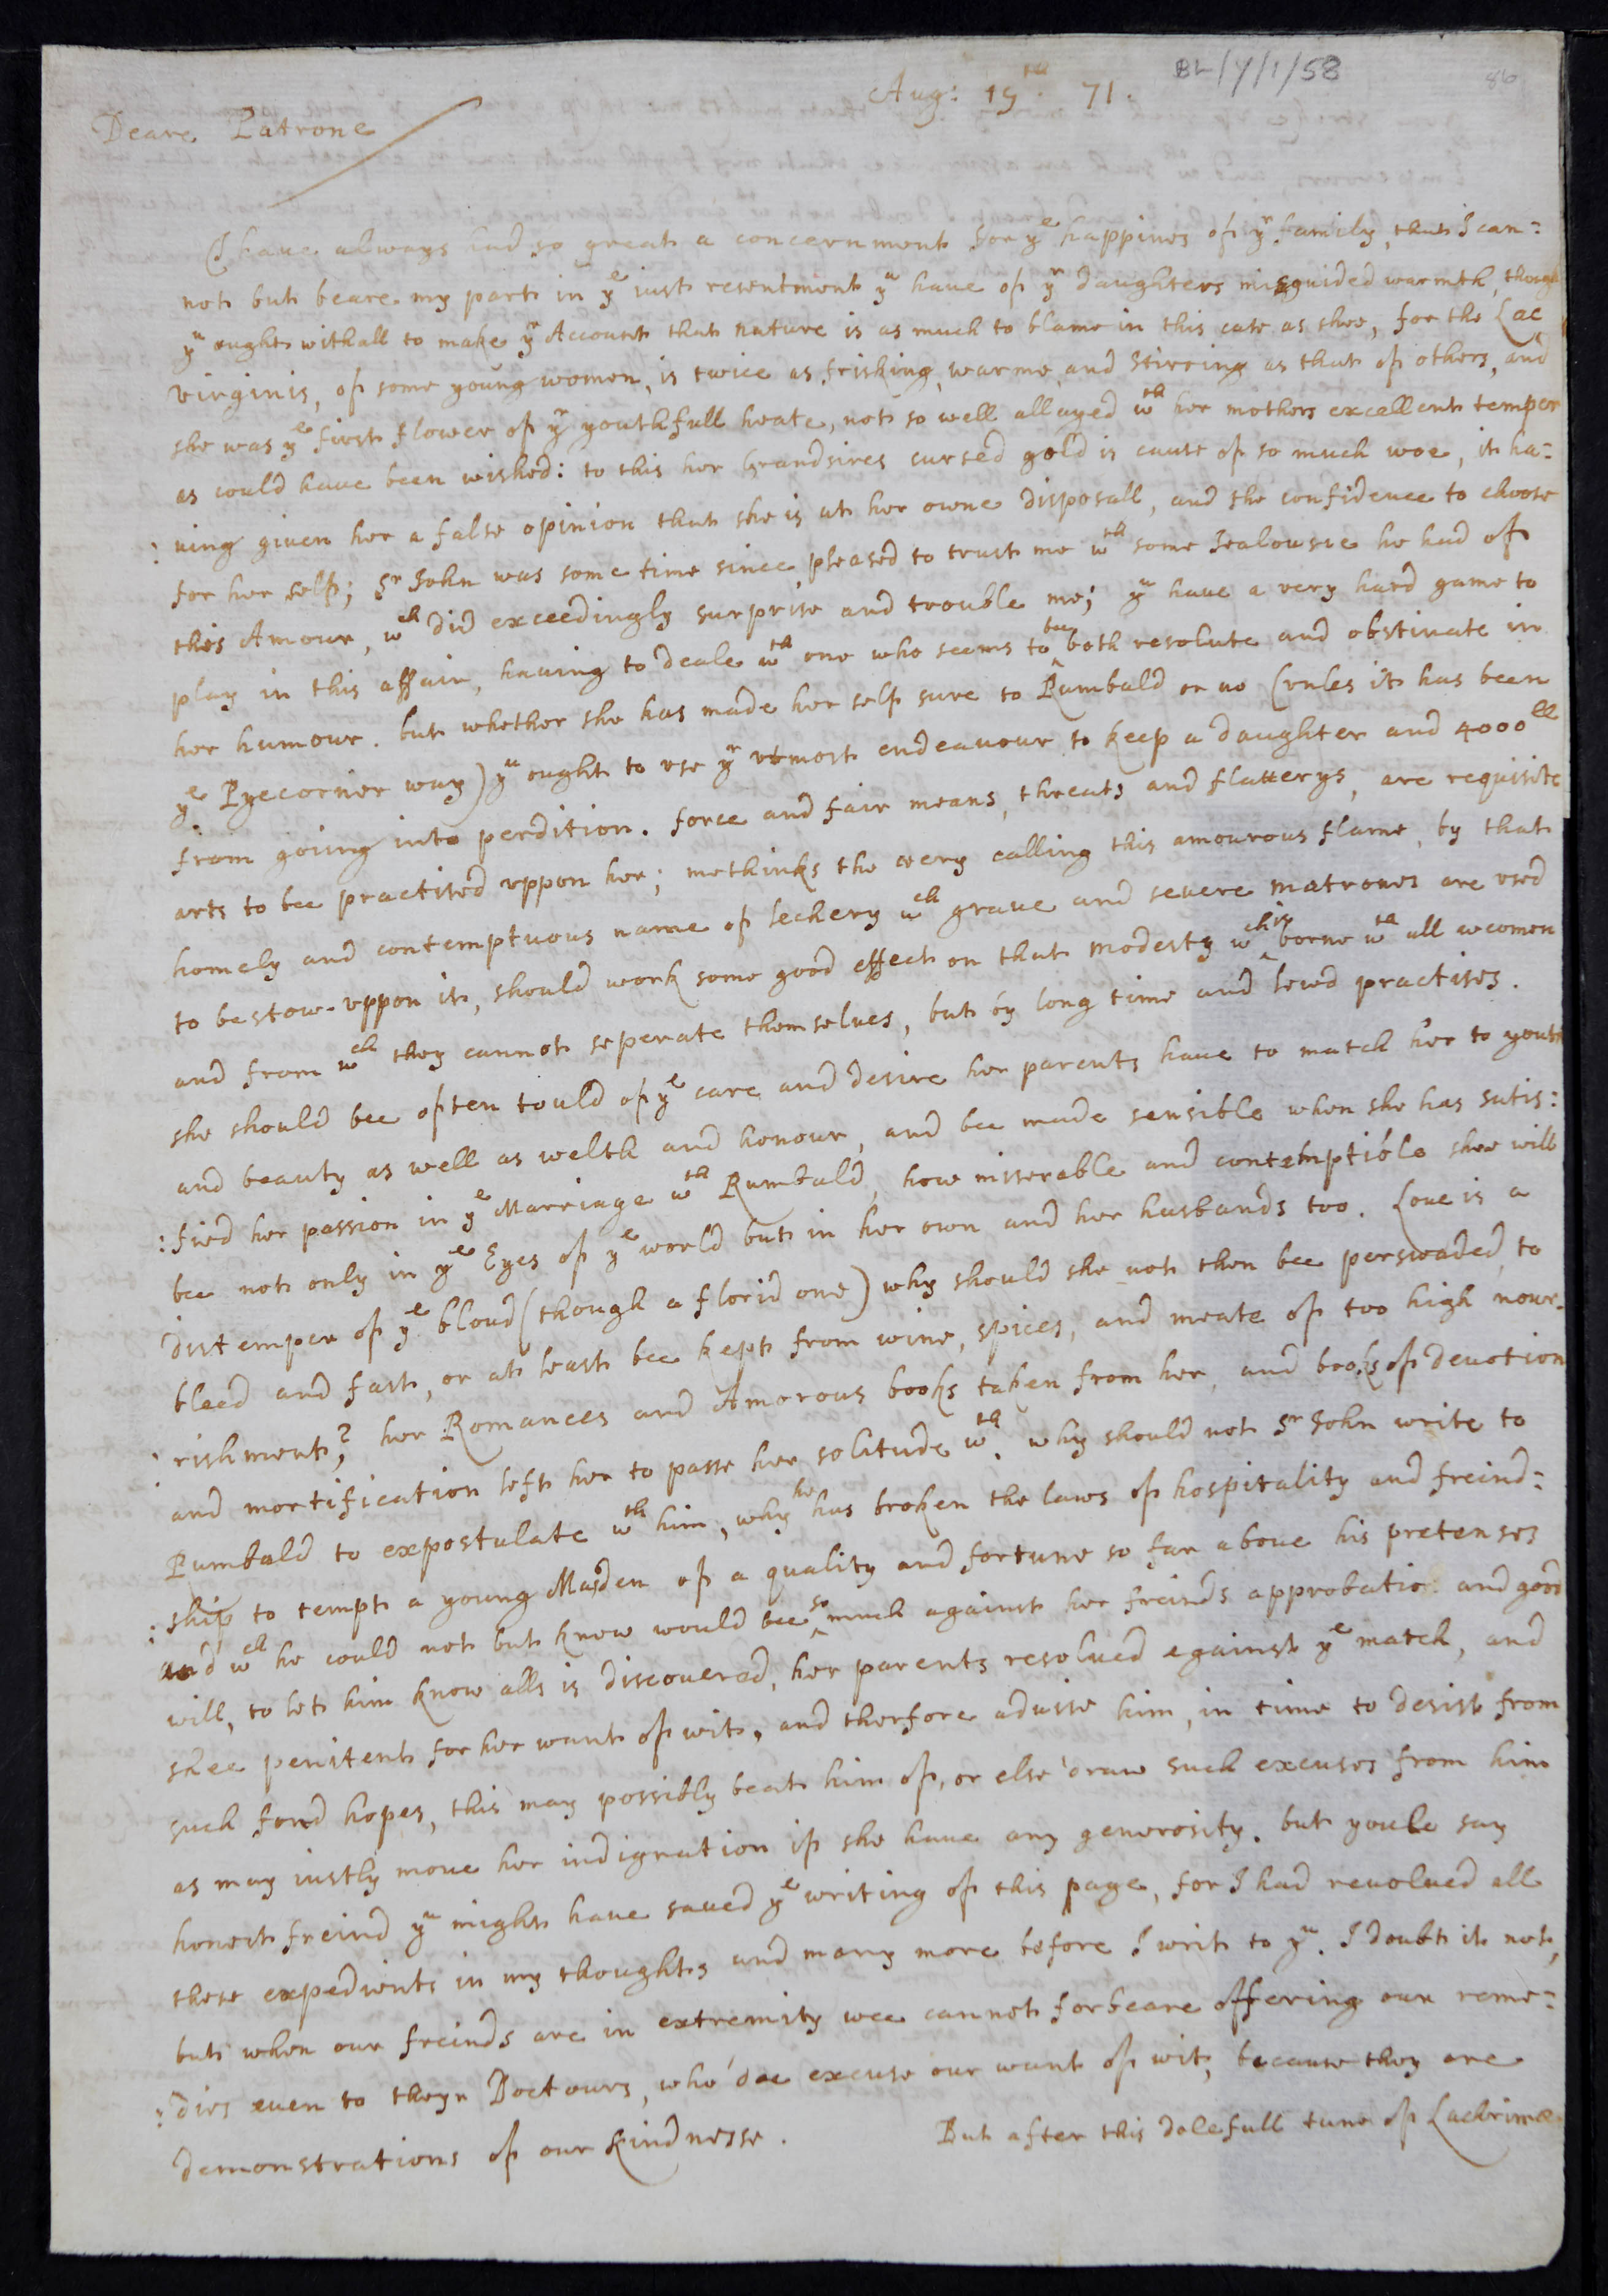 BL/Y/1/58
86
Aug: 19th 71.
Deare Patrone
I have always had so great a concernment for ye happines of yr family, that I can:
not but beare my part in ye iust resentment yu have of yr daughters misguided warmth, though
yu ought withall to make yr Account that nature is as much to blame in this case as shee, for the Lac
virginis, of some young women, is twice as frisking, warme, and stirring as that of others, and
she was ye first flower of yr youthfull heate, not so well allayed wth her mothers excellent temper
as could have been wished: to this her Grandsires cursed gold is cause of so much woe, it ha:
:uing given her a false opinion that she is at her owne disposall, and the confidence to choose
for her self; Sr John was some time since pleased to trust me wth some Jealousie he had of
this Amour, wch did exceedingly surprise and trouble me; yu have a very hard game to
play in this affair, hauing to deale wth one who seems to bee both resolute and obstinate in
her humour. but whether she has made her self sure to Rumbald or no (vnles it has been
ye Pyecorner way) yu ought to vse yr vtmost endeauour to keep a daughter and 4000ll
from going into perdition. force and fair means, threats and flatterys, are requisite
arts to bee practised vppon her; methinks the very calling this amourous flame, by that
homely and contemptuous name of lechery wch graue and seuere matrones are vsed
to bestow vppon it, should work some good effect on that modesty wch is borne wth all women
and from wch they cannot seperate themselues, but by long time and lewd practises.
she should bee often tould of ye care and desire her parents haue to match her to youth
and beauty as well as welth and honour, and bee made sensible when she has satis:
:fied her passion in ye Marriage wth Rumbald, how miserable and contemptible shee will
bee not only in ye Eyes of ye world but in her own and her husbands too. Loue is a
distemper of ye bloud (though a florid one) why should she not then bee perswaded to
bleed and fast, or at least bee kept from wine, spices, and meate of too high nour-
:rishment? her Romances and Amorous books taken from her, and books of deuotion
and mortification left her to passe her solitude wth. why should not Sr John write to
Rumbald to expostulate wth him, why he has broken the laws of hospitality and freind:
:ship to tempt a young Maiden of a quality and fortune so far aboue his pretenses
and wch he could not but know would bee so much against her freinds approbatio: and good
will, to let him know alls is discouered, her parents resolued against ye match, and
shee penitent for her want of wit, and therfore aduise him, in time to desist from
such fond hopes, this may possibly beat him of, or else draw such excuses from him
as may iustly moue her indignation if she haue any generosity. but youle say
honest freind yu might haue saued ye writing of this page, for I had reuolued all
these expedients in my thoughts and many more before I writ to yu. I doubt it not,
but when our freinds are in extremity wee cannot forbeare offering our reme:
:dies euen to theyr Doctours, who doe excuse our want of wit, because they are
demonstrations of our kindnesse. But after this dolefull tune of Lachrimæ